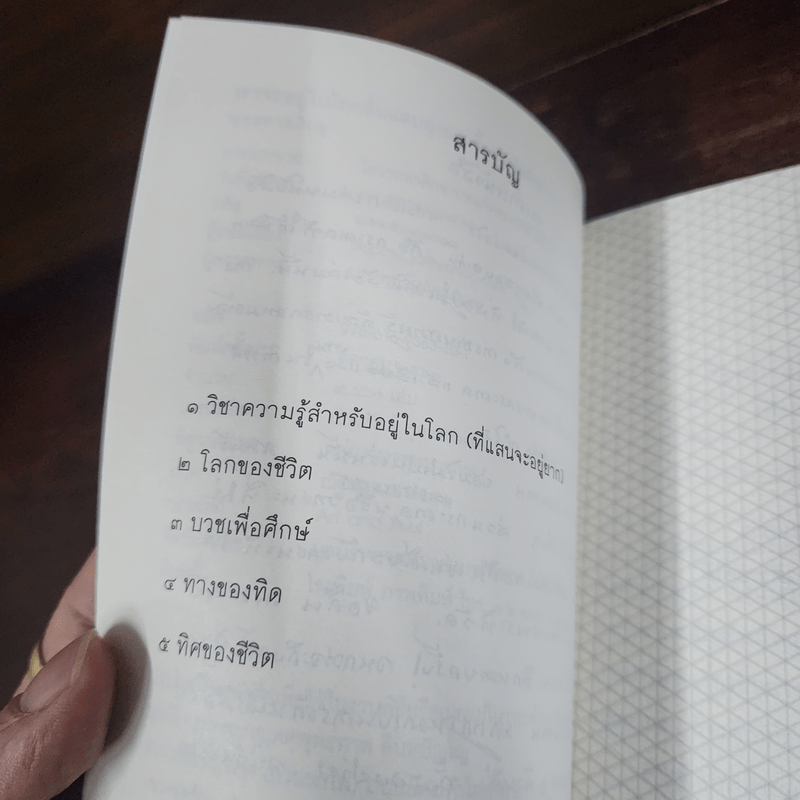 สารบัญ
๑ วิชาความรู้สำหรับอยู่ในโลก (ที่แสนจะอยู่ยาก)
๒ โลกของชีวิต
๓ บวชเพื่อศึกษ์
๔ ทางของทิด
๕ ทิศของชีวิต